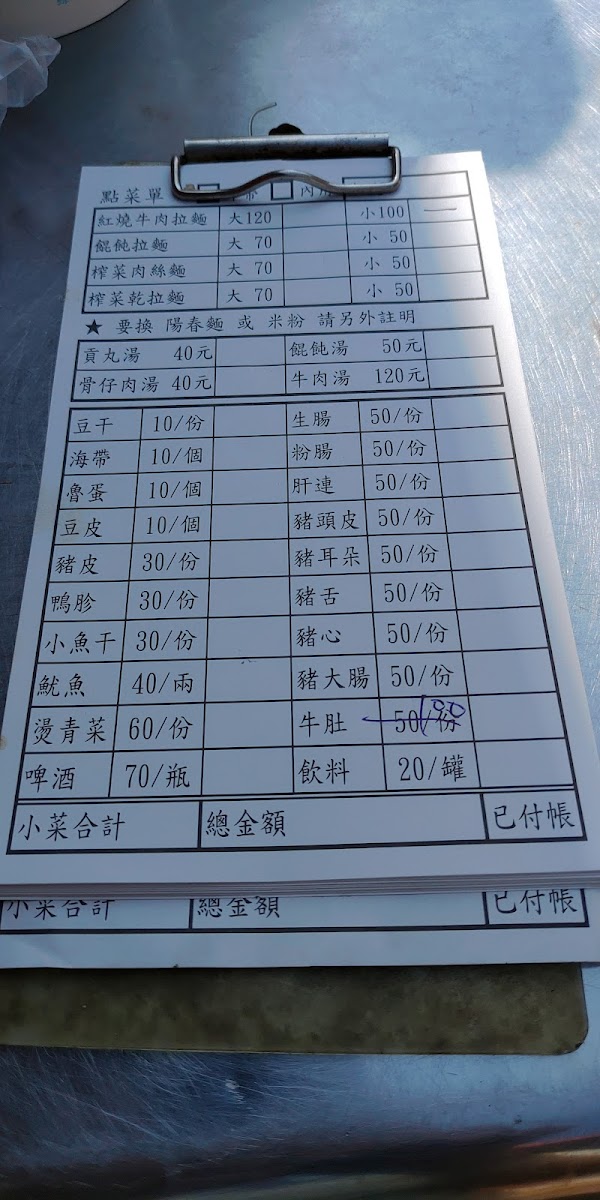 點菜單 □ □ 內用
紅燒牛肉拉麵 大120 小100 一
餛飩拉麵 大 70 小 50
榨菜肉絲麵 大 70 小 50
榨菜乾拉麵 大 70 小 50
★ 要換 陽春麵 或 米粉 請另外註明
貢丸湯 40元 餛飩湯 50元
骨仔肉湯 40元 牛肉湯 120元
豆干 10/份 生腸 50/份
海帶 10/個 粉腸 50/份
魯蛋 10/個 肝連 50/份
豆皮 10/個 豬頭皮 50/份
豬皮 30/份 豬耳朵 50/份
鴨胗 30/份 豬舌 50/份
小魚干 30/份 豬心 50/份
魷魚 40/兩 豬大腸 50/份
燙青菜 60/份 牛肚 50/份 100
啤酒 70/瓶 飲料 20/罐
小菜合計 總金額 已付帳
小菜合計 總金額 已付帳